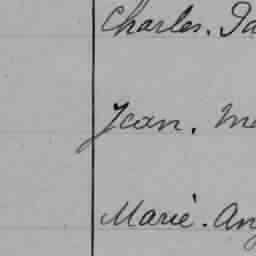 Charles. Ja
Jean. Ma
Marie. Ang